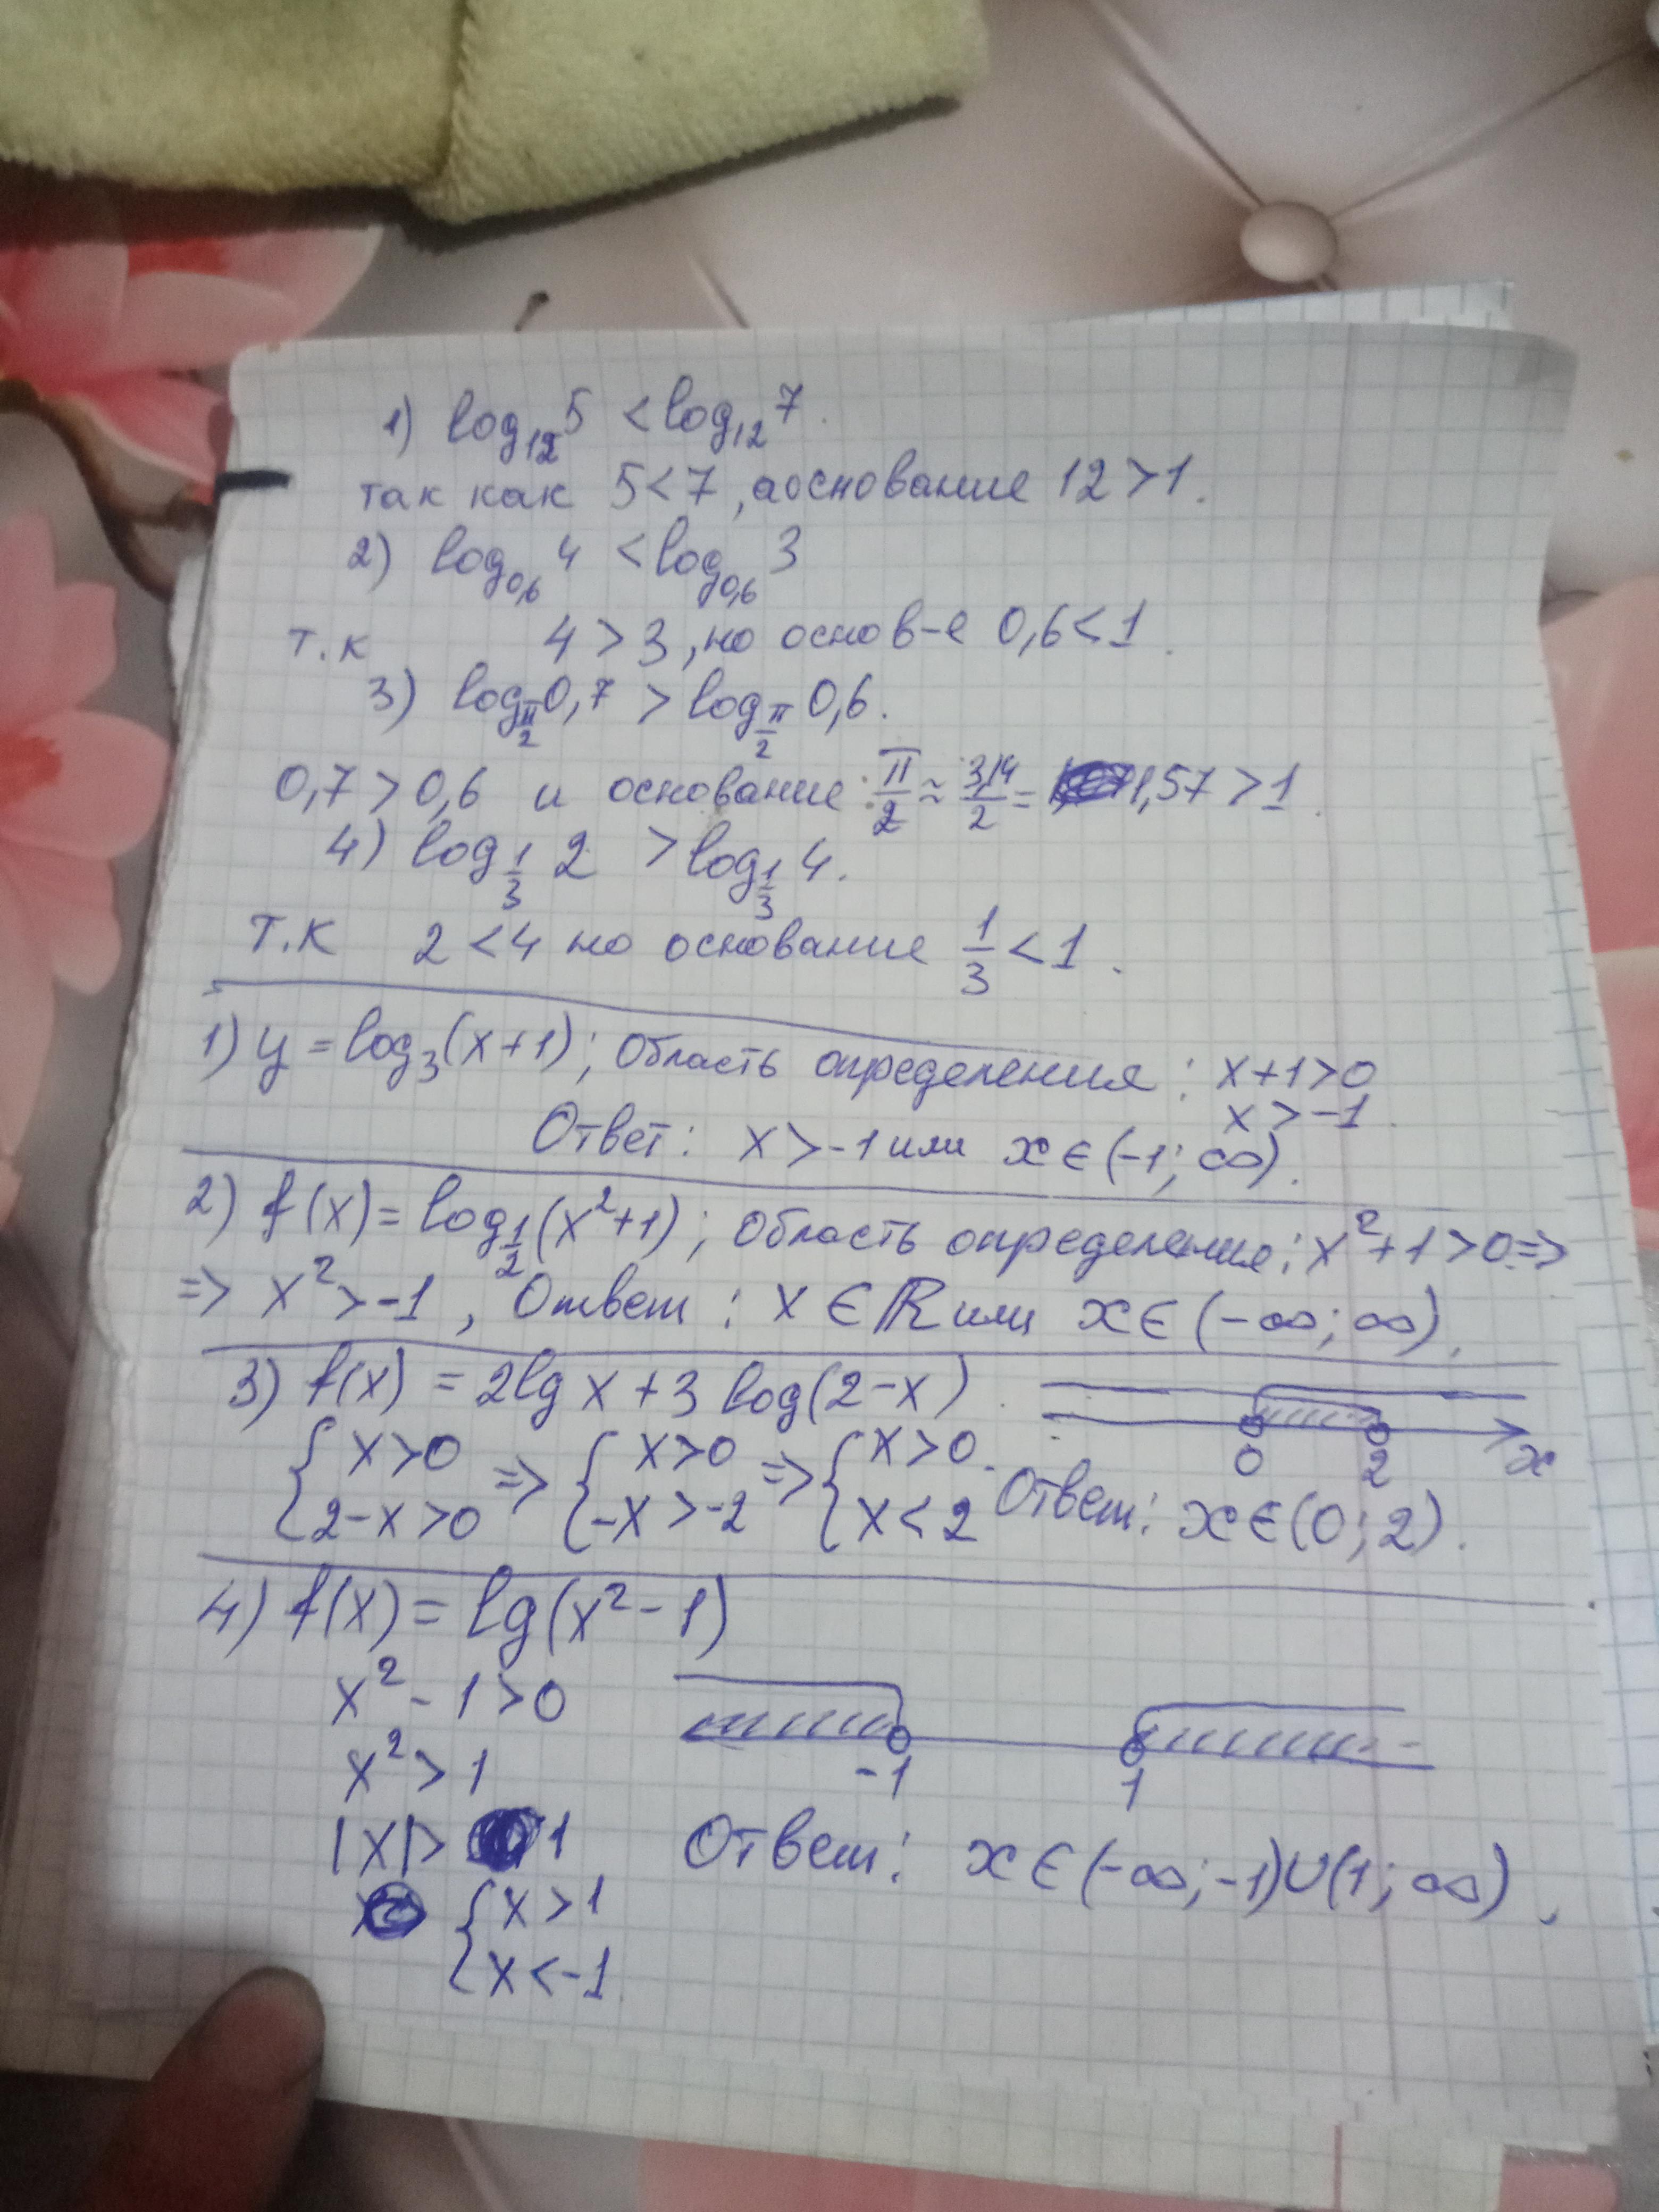 1) log₁₂ 5 < log₁₂ 7.
так как 5<7, а основание 12>1.
2) log₀,₆ 4 < log₀,₆ 3
т.к 4>3, но основ-е 0,6<1.
3) log_π/2 0,7 > log_π/2 0,6.
0,7>0,6 и основание π/2 ≈ 3,14/2 = 1,57>1.
4) log_1/3 2 > log_1/3 4.
т.к 2<4 но основание 1/3<1.
1) y = log₃(x+1); Область определения: x+1>0
x>-1.
Ответ: x>-1 или x∈(-1; ∞).
2) f(x) = log_1/2(x²+1); Область определения: x²+1>0 =>
=> x²>-1, Ответ: x∈ℝ или x∈(-∞; ∞).
3) f(x) = 2lg x + 3 log(2-x).
{x>0 => {x>0 => {x>0.
{2-x>0 {-x>-2 {x<2 Ответ: x∈(0; 2).
0 2 x
4) f(x) = lg(x²-1)
x²-1>0
x²>1
-1 1
|x|> 1
Ответ: x∈(-∞; -1)∪(1; ∞).
{x>1
{x<-1.